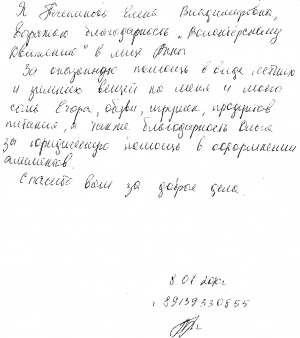 Я Печенкова Елена Владимировна,
выражаю благодарность "Волонтёрскому
Движению" в лице Анны
За оказанную помощь в виде летних
и зимних вещей на меня и моего
сына Егора, обуви, игрушек, продуктов
питания, а также благодарность
за юридическую помощь в оформлении
алиментов.
Спасибо вам за добрые дела.
8.01
т 89139330855